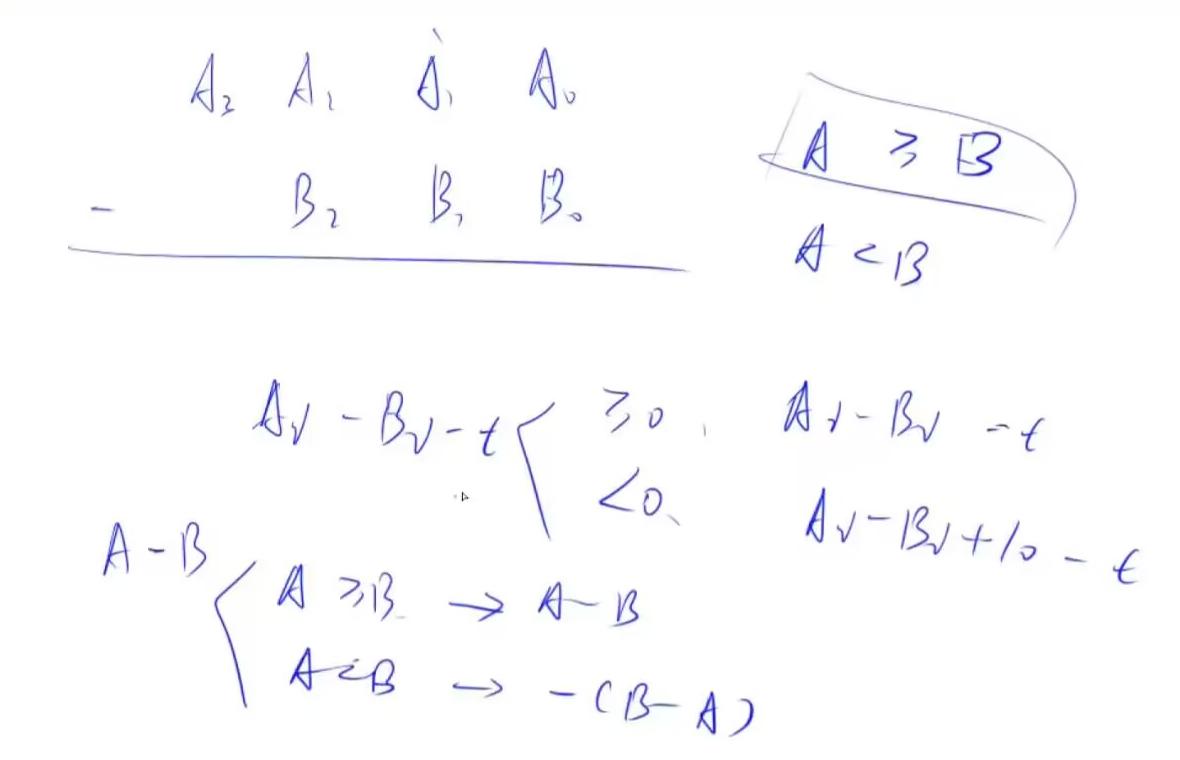 A₃ A₂ A₁ A₀
- B₂ B₁ B₀
A ≥ B
A < B
Aᵢ - Bᵢ - t ≥0, Aᵢ - Bᵢ - t
<0, Aᵢ - Bᵢ + 10 - t
A - B
A ≥ B → A - B
A < B → -(B - A)